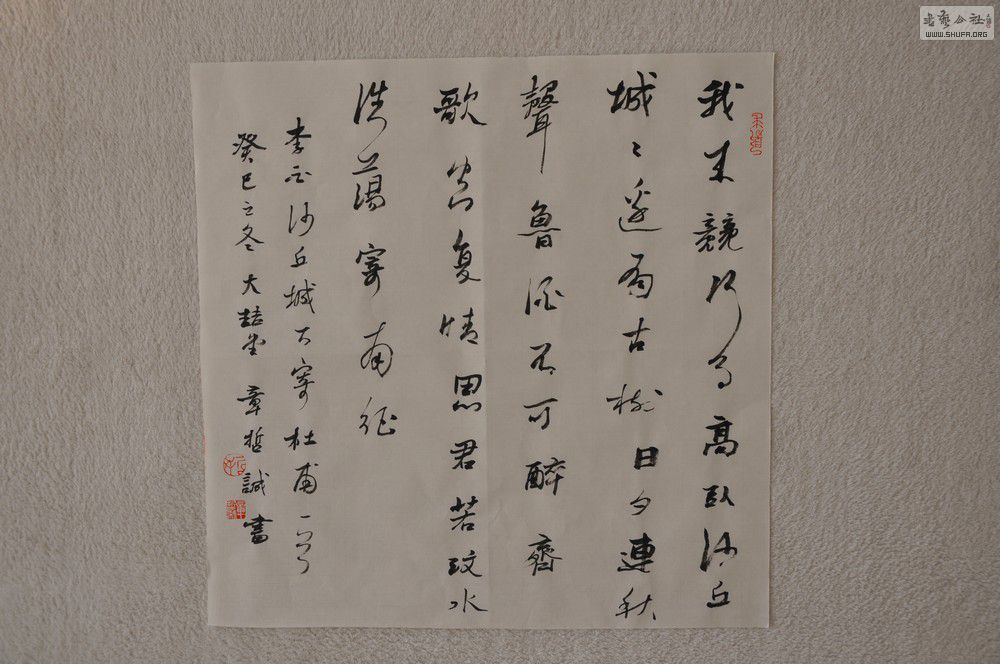 我来競何事高臥沙丘
城〻邊有古樹日夕連秋
聲魯酒不可醉齊
歌空复情思君若汶水
浩蕩寄南征
李白沙丘城下寄杜甫一首
癸巳立冬大喆堂章哲誠書
書藝公社
WWW.SHUFA.ORG